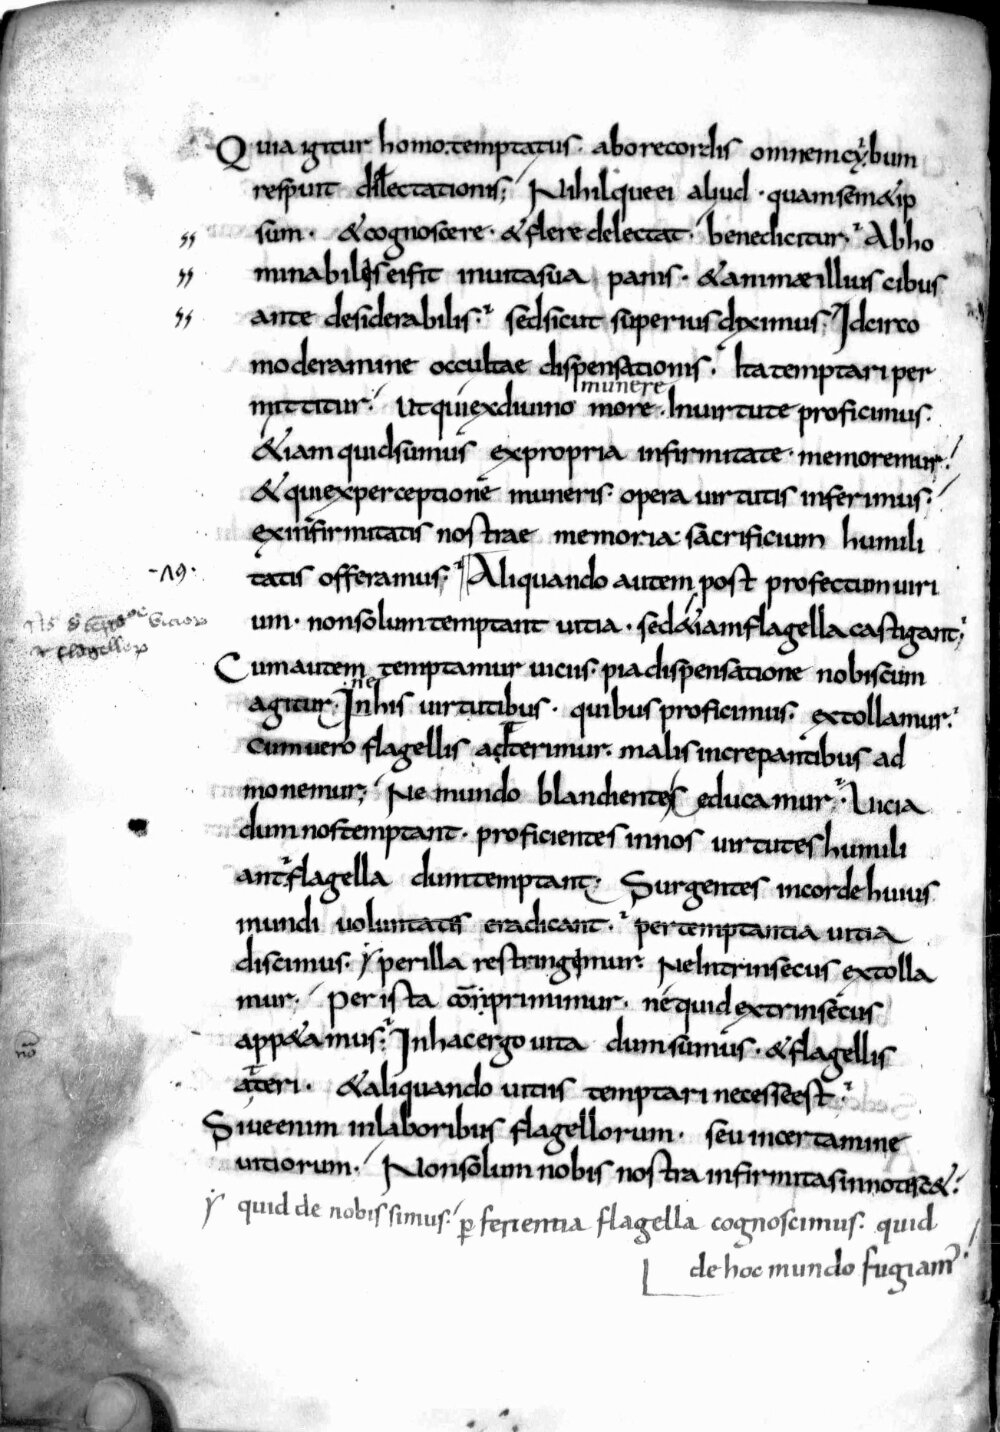 Quia igitur homo temptatus · ab ore cordis omnem cybum
respuit dilectationis; Nihilque ei aliud · quam sem&ip
sum · & cognoscere · & flere delectat · benedicitur · Abho
minabilis ei fit in uita sua panis · & animae illius cibus
ante desiderabilis · sed sicut superius diximus · Idcirco
moderamine occultae dispensationis · Ita temptari per
munere
mittitur · Ut qui ex diuino more · In uirtute proficimus ·
&iam quid sumus ex propria infirmitate · memoremur ·
& qui ex perceptione muneris · opera uirtutis inferimus ·
ex infirmitatis nostrae memoria · sacrificium humili
-19·
tatis offeramus · Aliquando autem post profectum uiri
um · non solum temptant uitia · sed &iam flagella castigant ·
Cum autem temptamur uiciis · pia dispensatione nobiscum
ne
agitur · In his uirtutibus · quibus proficimus · extollamur ·
cum uero flagellis adterimur · malis increpantibus ad
monemur; Ne mundo blandientes educamur · Uicia
dum nos temptant · proficientes in nos uirtutes humili
ant · flagella dum temptant · Surgentes in corde huius
mundi uoluntates eradicant · per temptantia uitia
discimus · per illa restringimur · Ne intrinsecus extolla
mur · Per ista comprimimur · ne quid extrinsecus
app&amus · In hac ergo uita dum sumus · & flagellis
atteri · & aliquando uitiis temptari necesse est ·
Siue enim in laboribus flagellorum · seu in certamine
uitiorum · Non solum nobis nostra infirmitas innotisc& ·
quid de nobis simus · p̱ ferientia flagella cognoscimus · quid
de hoc mundo fugiam̄